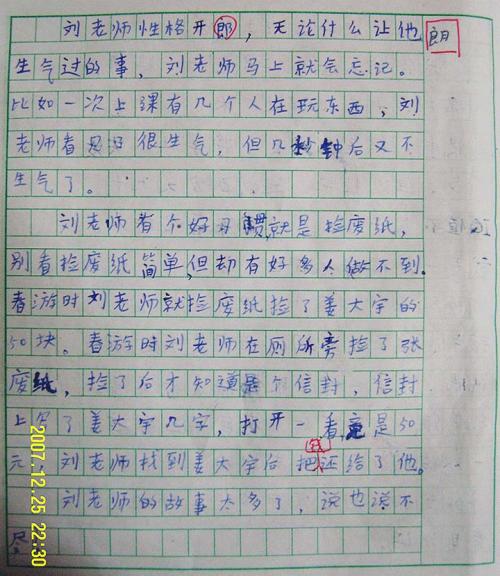 刘老师性格开郎，无论什么让他 朗
生气过的事，刘老师马上就会忘记。
比如一次上课有几个人在玩东西，刘
老师看见后很生气，但几秒钟后又不
生气了。
刘老师有个好习惯就是捡废纸，
别看捡废纸简单，但却有好多人做不到。
春游时刘老师就捡废纸捡了姜大宇的
50块。春游时刘老师在厕所旁捡了张
废纸，捡了后才知道是个信封，信封
上写了姜大宇几字，打开一看竟是50
元。刘老师找到姜大宇后把还给了他。
刘老师的故事太多了，说也说不
尽
2007.12.25 22:30